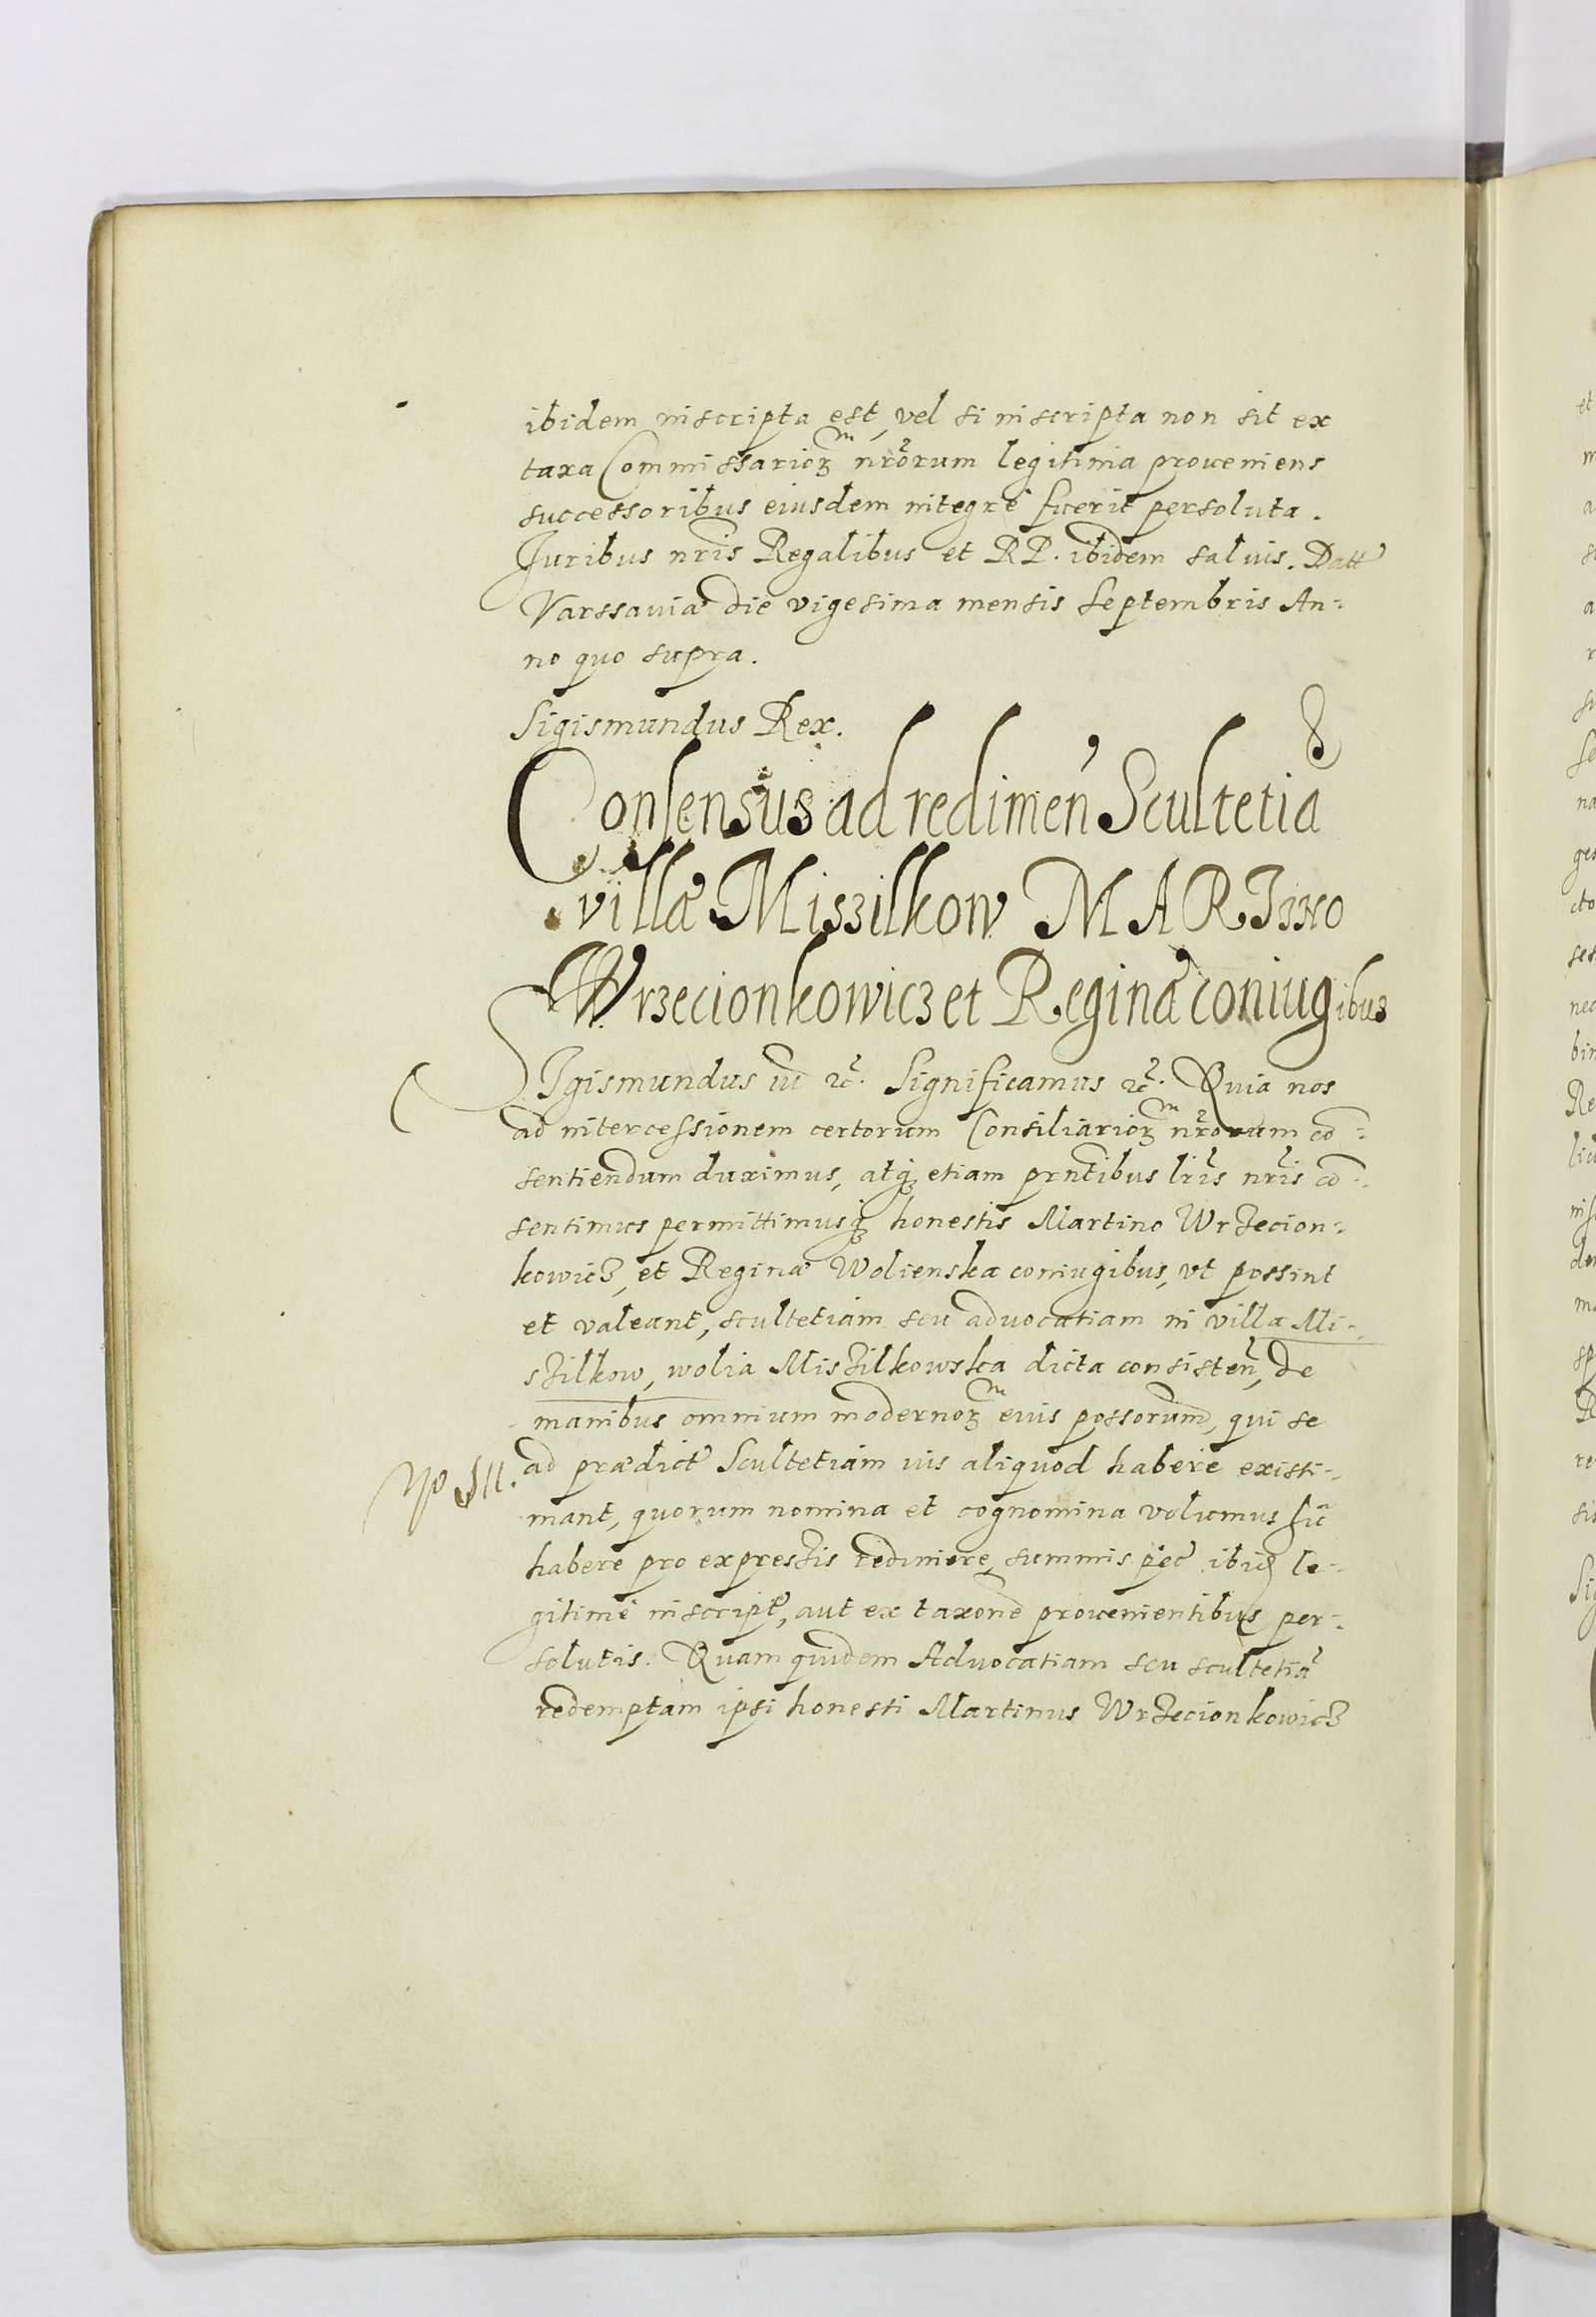 ibidem inscripta est, vel si inscripta non sit ex
taxa Commissarioꝝ nr̃orum legitima proueniens
successoribus eiusdem integrè fuerit persoluta.
Juribus nr̃is Regalibus et RP. ibidem saluis. Datt
Varssauiæ die vigesima mensis Septembris An=
no quo supra.
Sigismundus Rex.
Consensus ad redimeñ Scultetiã
villæ Miszilkow MARTINO
Wrzecionkowicz et Reginæ coniugibus
SIgismundus iii ꝛc̃. Significamus ꝛc̃. Quia nos
ad intercessionem certorum Consiliarioꝝ nr̃orum cõ=
sentiendum duximus, atqꝫ etiam prñtibus lr̃is nr̃is cõ=
sentimus permittimusqꝫ honestis Martino Wrzecion=
kowicz, et Reginæ Wolienska coniugibus, vt possint
et valeant, scultetiam seu aduocatiam in villa Mi=
szilkow, wolia Miszilkowska dicta consisteñ, de
manibus omnium modernoꝝ eius possorum̃, qui se
ad prædict Scultetiam ius aliquod habere existi=
mant, quorum nomina et cognomina volumus hic
habere pro expressis redimere, summis pec ibid le=
gitimè inscript, aut ex taxone prouenientibus per=
solutis. Quam quidem Aduocatiam seu scultetiã
redemptam ipsi honesti Martinus Wrzecionkowicz